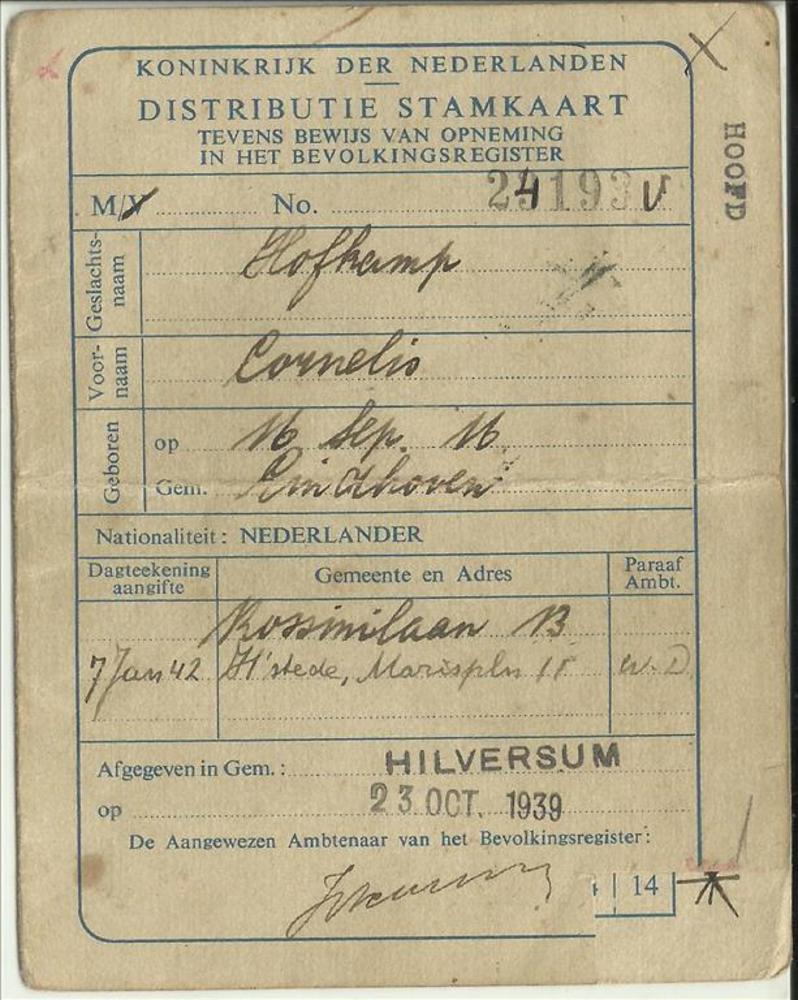 KONINKRIJK DER NEDERLANDEN
DISTRIBUTIE STAMKAART
TEVENS BEWIJS VAN OPNEMING
IN HET BEVOLKINGSREGISTER
HOOFD
M/V No. 24193 V
Geslachtsnaam Hofkamp
Voornaam Cornelis
Geboren op 16 Sep. 16
Gem. Eindhoven
Nationaliteit: NEDERLANDER
Dagteekening aangifte Gemeente en Adres Paraaf Ambt.
Rossinilaan 13
7 Jan 42 H'stede, Marispln
Afgegeven in Gem.: HILVERSUM
op 23 OCT. 1939
De Aangewezen Ambtenaar van het Bevolkingsregister:
14